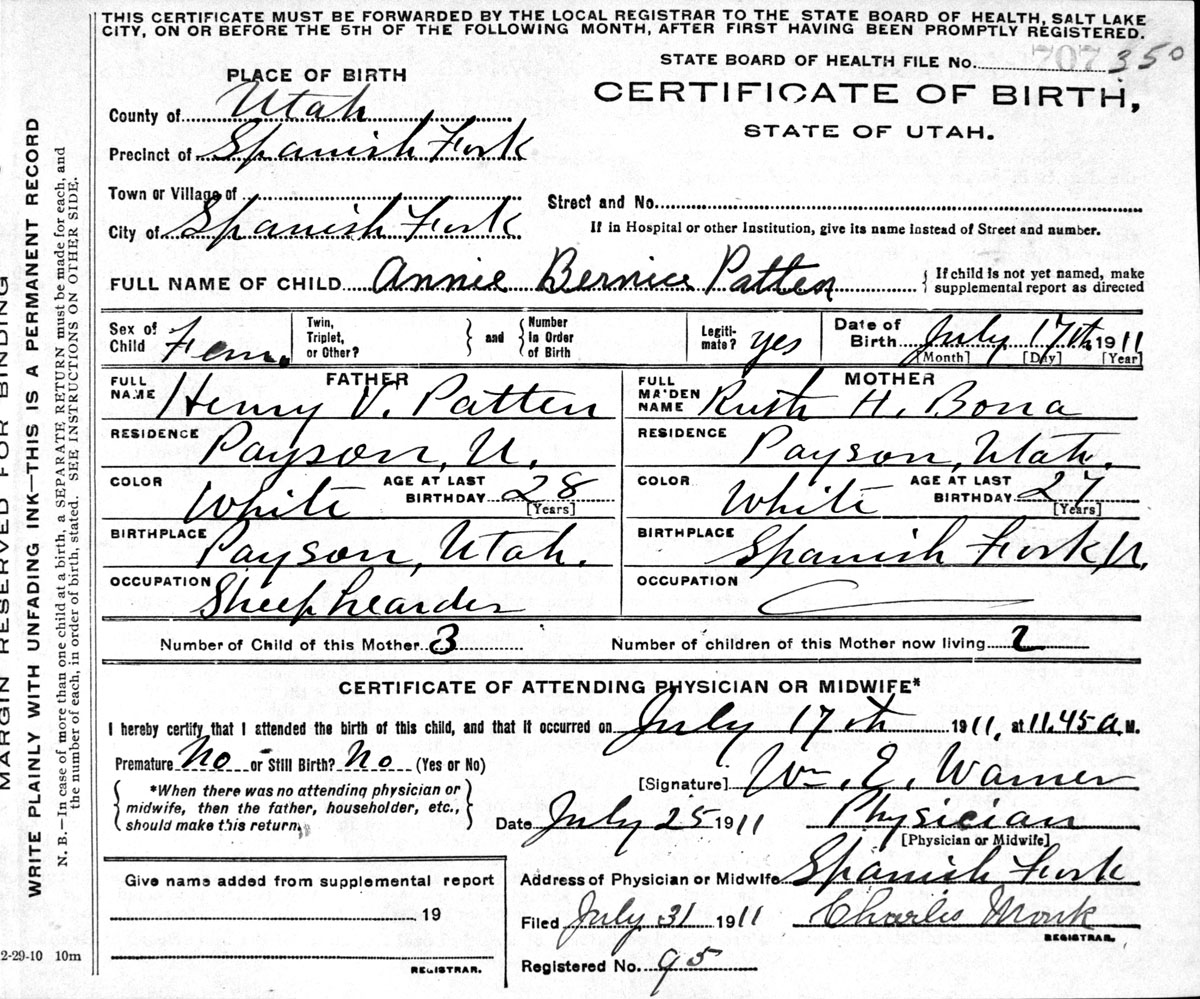 THIS CERTIFICATE MUST BE FORWARDED BY THE LOCAL REGISTRAR TO THE STATE BOARD OF HEALTH, SALT LAKE
CITY, ON OR BEFORE THE 5TH OF THE FOLLOWING MONTH, AFTER FIRST HAVING BEEN PROMPTLY REGISTERED.
STATE BOARD OF HEALTH FILE No. 707 350
PLACE OF BIRTH
CERTIFICATE OF BIRTH,
STATE OF UTAH.
County of Utah
Precinct of Spanish Fork
Town or Village of
Street and No.
City of Spanish Fork
If in Hospital or other Institution, give its name instead of Street and number.
FULL NAME OF CHILD Annie Bernice Patten
{ If child is not yet named, make
supplemental report as directed
Sex of Child Fem.
Twin, Triplet, or Other? } and { Number In Order of Birth
Legiti-mate? yes
Date of Birth July 17th 1911
[Month] [Day] [Year]
FATHER
FULL NAME Henry V. Patten
RESIDENCE Payson, U.
COLOR White AGE AT LAST BIRTHDAY 28
[Years]
BIRTHPLACE Payson, Utah.
OCCUPATION Sheep hearder
MOTHER
FULL MAIDEN NAME Ruth H. Bona
RESIDENCE Payson, Utah.
COLOR White AGE AT LAST BIRTHDAY 27
[Years]
BIRTHPLACE Spanish Fork U.
OCCUPATION
Number of Child of this Mother 3 Number of children of this Mother now living 2
CERTIFICATE OF ATTENDING PHYSICIAN OR MIDWIFE*
I hereby certify that I attended the birth of this child, and that it occurred on July 17th 1911, at 11.45 a.M.
Premature No or Still Birth? No (Yes or No)
*When there was no attending physician or
midwife, then the father, householder, etc.,
should make this return.
[Signature] Wm. E. Warner
Date July 25 1911 Physician
[Physician or Midwife]
Give name added from supplemental report
19
REGISTRAR.
Address of Physician or Midwife Spanish Fork
Filed July 31 1911 Charles Monk
REGISTRAR.
Registered No. 95
MARGIN RESERVED FOR BINDING
WRITE PLAINLY WITH UNFADING INK—THIS IS A PERMANENT RECORD
N. B.—In case of more than one child at a birth, a SEPARATE RETURN must be made for each, and
the number of each, in order of birth, stated. SEE INSTRUCTIONS ON OTHER SIDE.
2-29-10 10m